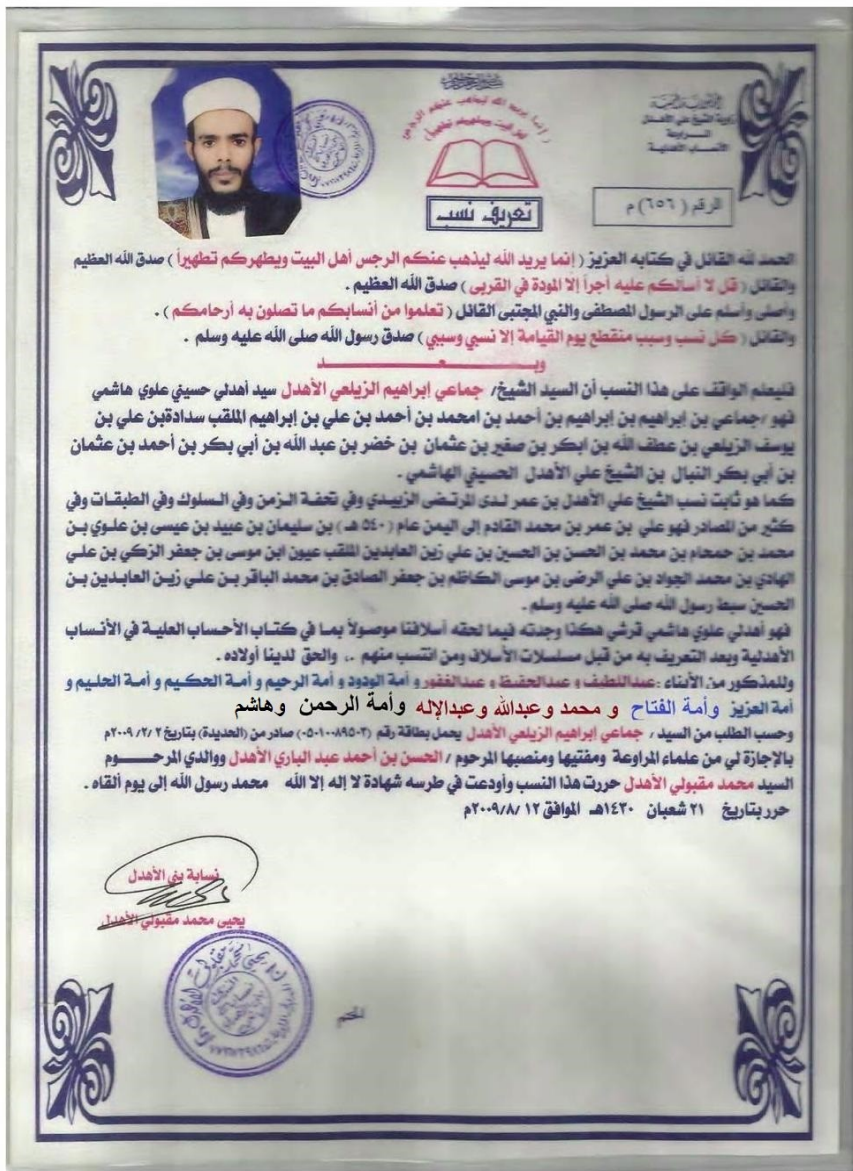 زاوية الشيخ علي الأهدل
المراوعة
الأنساب الأهدلية
( إنما يريد الله ليذهب عنكم الرجس
أهل البيت ويطهركم تطهيراً )
تعريف نسب
الرقم ( ٦٥٦ ) م
الحمد لله القائل في كتابه العزيز ( إنما يريد الله ليذهب عنكم الرجس أهل البيت ويطهركم تطهيراً ) صدق الله العظيم
والقائل ( قل لا أسألكم عليه أجراً إلا المودة في القربى ) صدق الله العظيم .
وأصلي وأسلم على الرسول المصطفى والنبي المجتبى القائل ( تعلموا من أنسابكم ما تصلون به أرحامكم ) .
والقائل ( كل نسب وسبب منقطع يوم القيامة إلا نسبي وسببي ) صدق رسول الله صلى الله عليه وسلم .
وبـــعـــد
فليعلم الواقف على هذا النسب أن السيد الشيخ/ جماعي إبراهيم الزيلعي الأهدل سيد أهدلي حسيني علوي هاشمي
فهو /جماعي بن إبراهيم بن إبراهيم بن أحمد بن امحمد بن أحمد بن علي بن إبراهيم الملقب سدادةبن علي بن
يوسف الزيلعي بن عطف الله بن ابكر بن صغير بن عثمان بن خضر بن عبد الله بن أبي بكر بن أحمد بن عثمان
بن أبي بكر النبال بن الشيخ علي الأهدل الحسيني الهاشمي .
كما هو ثابت نسب الشيخ علي الأهدل بن عمر لدى المرتضى الزبيدي وفي تحفة الزمن وفي السلوك وفي الطبقات وفي
كثير من المصادر فهو علي بن عمر بن محمد القادم إلى اليمن عام ( ٥٤٠ هـ ) بن سليمان بن عبيد بن عيسى بن علوي بن
محمد بن حمحام بن محمد بن الحسن بن الحسين بن علي زين العابدين الملقب عيون ابن موسى بن جعفر الزكي بن علي
الهادي بن محمد الجواد بن علي الرضى بن موسى الكاظم بن جعفر الصادق بن محمد الباقر بن علي زين العابدين بن
الحسين سبط رسول الله صلى الله عليه وسلم .
فهو أهدلي علوي هاشمي قرشي هكذا وجدته فيما لحقه أسلافنا موصولاً بما في كتاب الأحساب العلية في الأنساب
الأهدلية وبعد التعريف به من قبل مسلسلات الأسلاف ومن انتسب منهم .، والحق لدينا أولاده .
وللمذكور من الأبناء : عبداللطيف و عبدالحفيظ و عبدالغفور و أمة الودود و أمة الرحيم و أمة الحكيم و أمة الحليم و
أمة العزيز وأمة الفتاح و محمد وعبدالله وعبدالإله وأمة الرحمن وهاشم
وحسب الطلب من السيد / جماعي إبراهيم الزيلعي الأهدل يحمل بطاقة رقم (٠٥٠١٠٠٨٩٥٠٣) صادر من (الحديدة) بتاريخ ٢٠٠٩/٢/٢م
بالإجازة لي من علماء المراوعة ومفتيها ومنصبها المرحوم / الحسن بن أحمد عبد الباري الأهدل ووالدي المرحـــوم
السيد محمد مقبولي الأهدل حررت هذا النسب وأودعت في طرسه شهادة لا إله إلا الله محمد رسول الله إلى يوم ألقاه .
حرر بتاريخ ٢١ شعبان ١٤٣٠هـ الموافق ٢٠٠٩/٨/١٢م
نسابة بني الأهدل
يحيى محمد مقبولي الأهدل
الختم